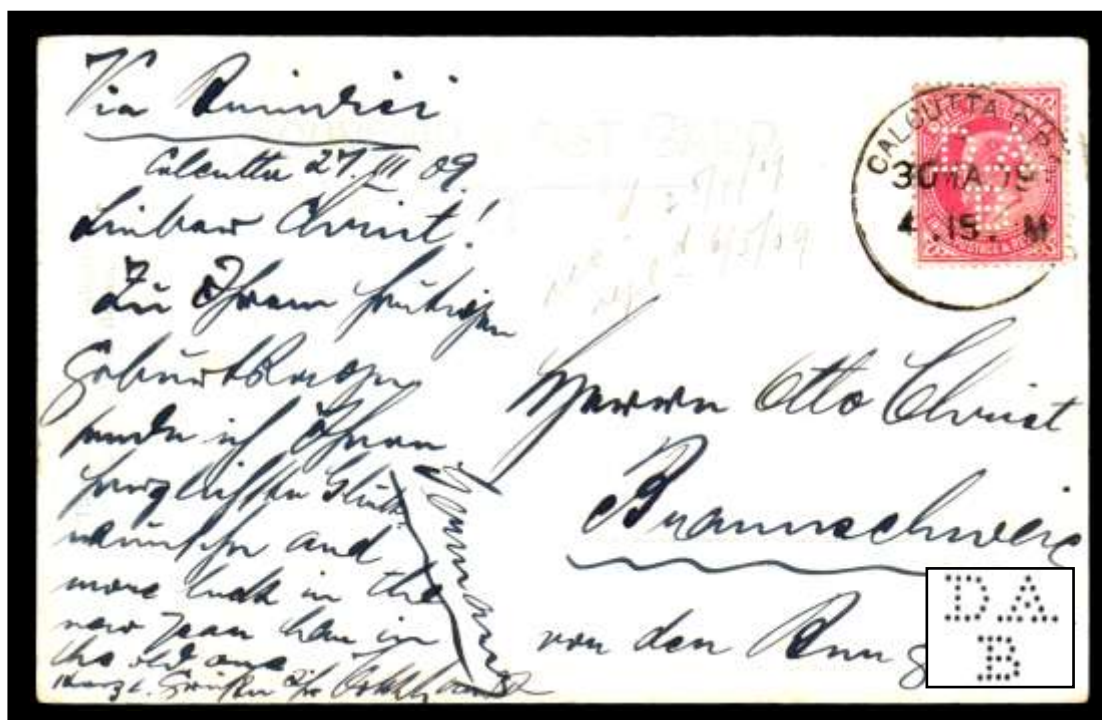 Via Brindisi
Calcutta 27. III 09.
Lieber Christ!
Zu Ihrem heutigen
Geburtstage
sende ich Ihnen
herzlichsten Glück-
wünsche and
more luck in the
new year than in
the old one
Herzl. Grüßen Ihr
Germany
Herrn Otto Christ
Braunschweig
von den
CALCUTTA
30 MA 09
4.15. M
DA
B